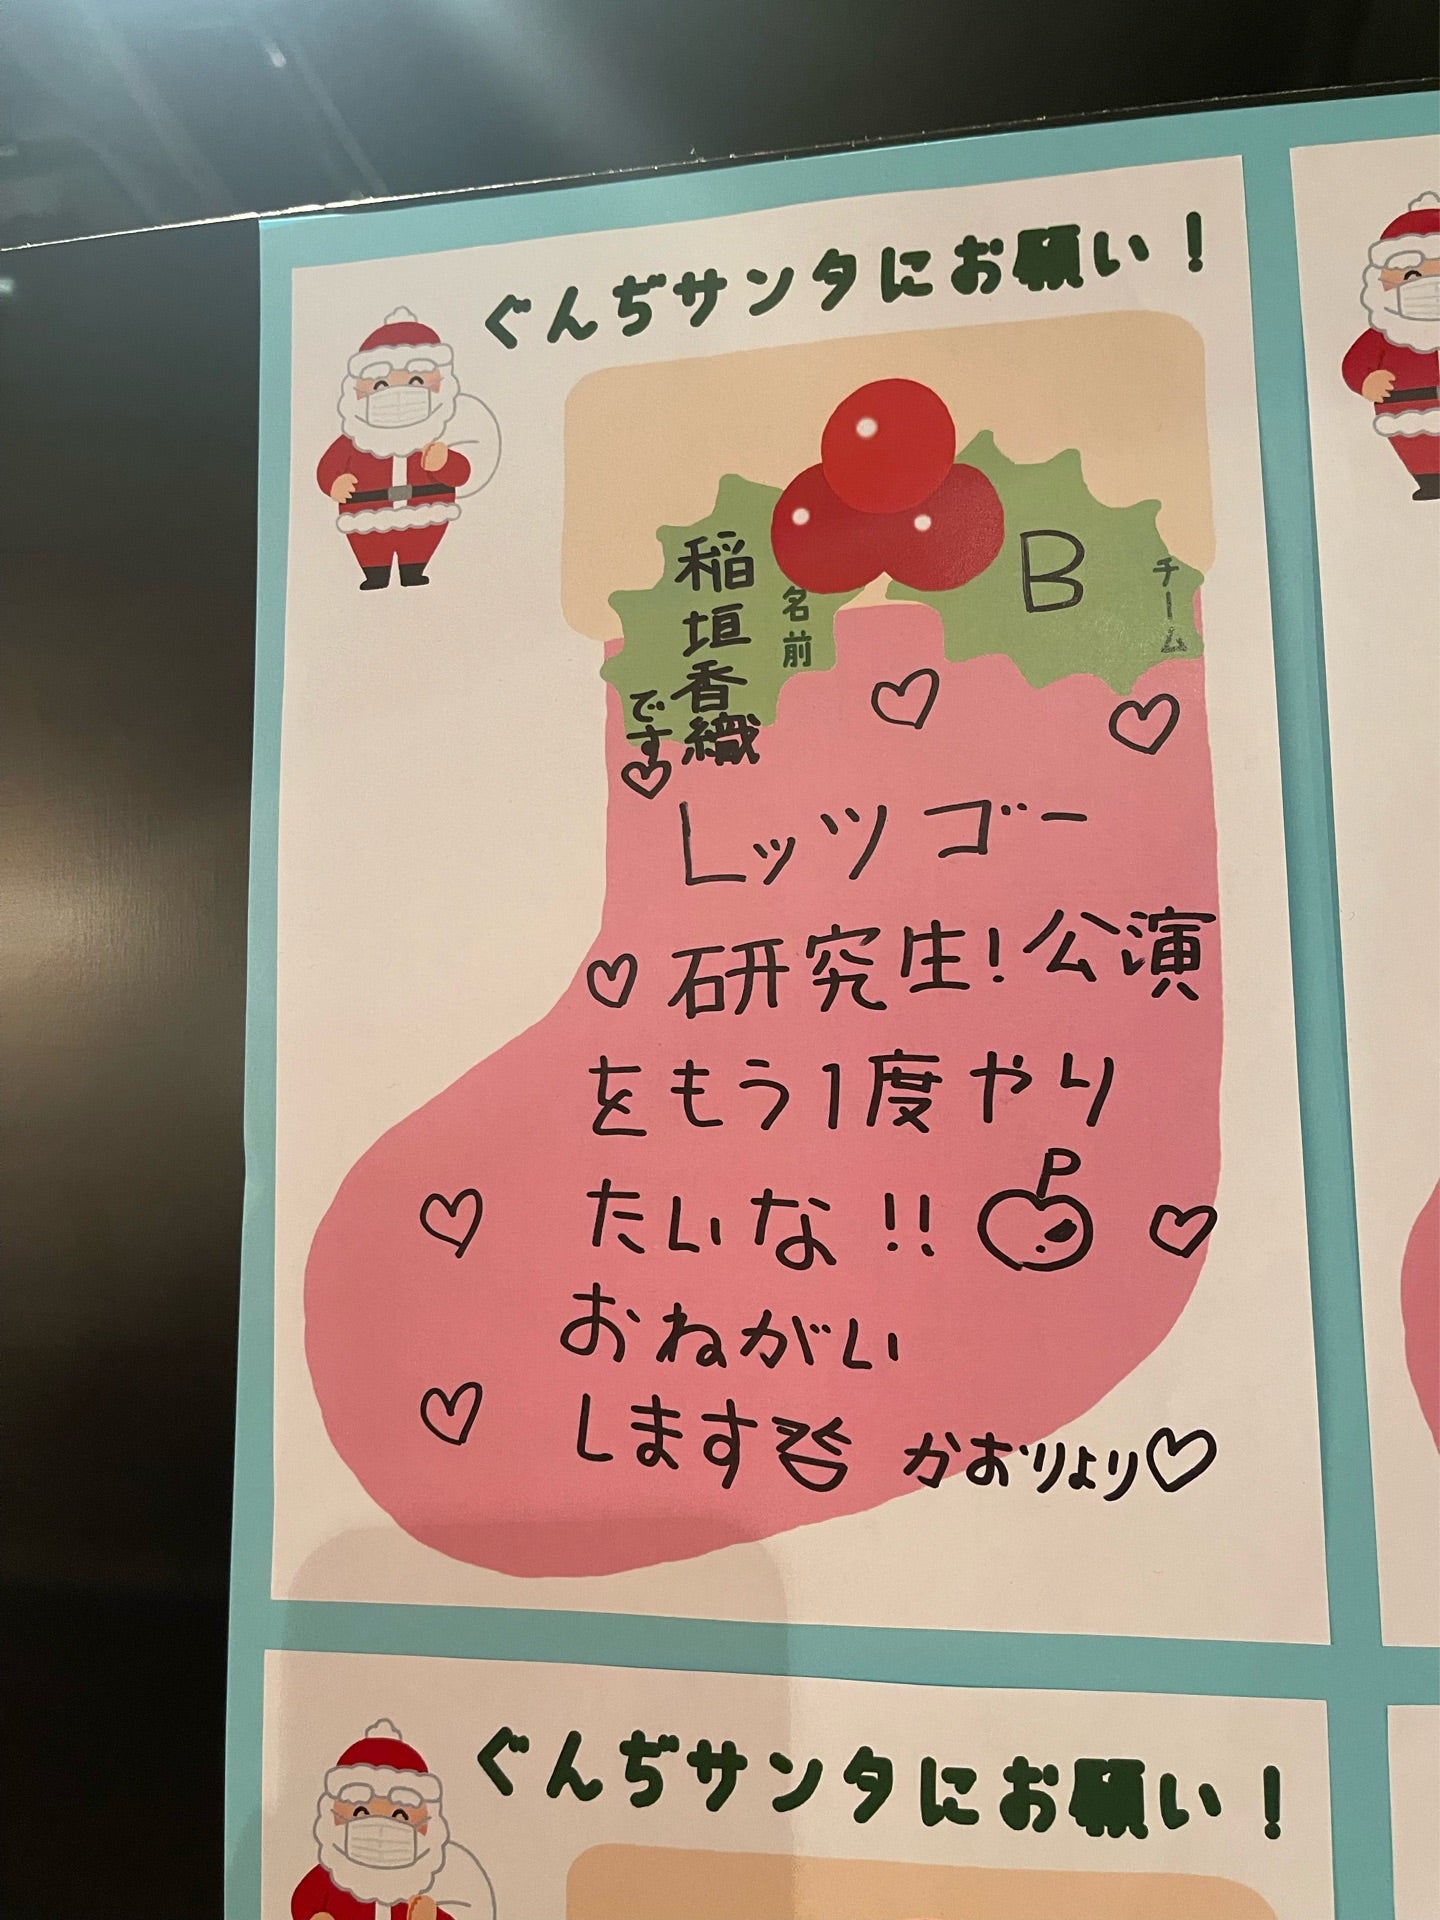 ぐんぢサンタにお願い！
チーム
B
名前
稲垣香織
です
レッツゴー
研究生!公演
をもう1度やり
たいな!!
P
おねがい
します
かおりより
ぐんぢサンタにお願い！